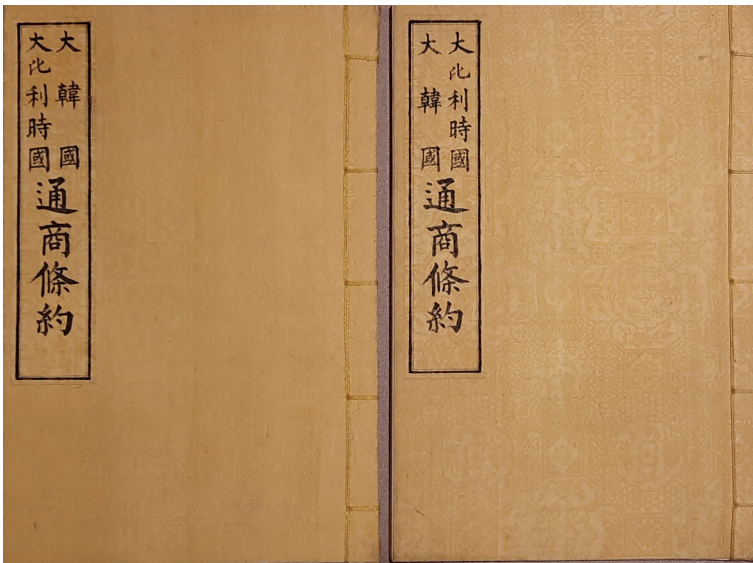 大韓國
大比利時國
通商條約
大比利時國
大韓國
通商條約